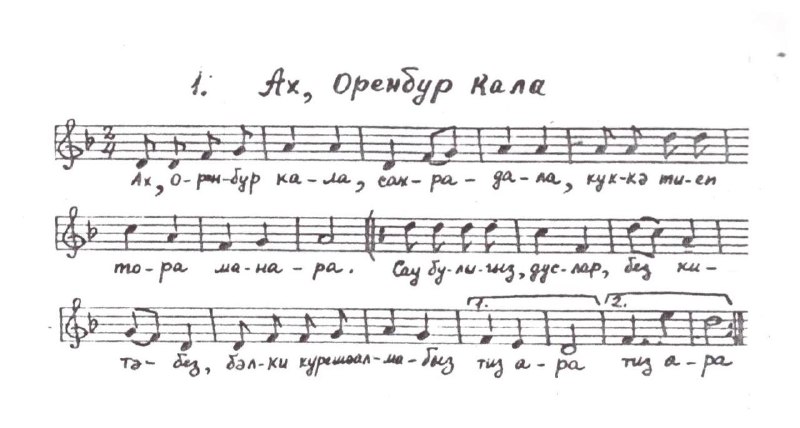 1. Ах, Оренбур кала
2/4
Ах, О-рен-бур ка-ла, сах-ра-да-ла, кук-кә ти-еп
то-ра ма-на-ра. Сау бу-лы-гыз, дус-лар, без ки-
1. 2.
тә-без, бәл-ки күрешәал-ма-быз тиз а-ра тиз а-ра